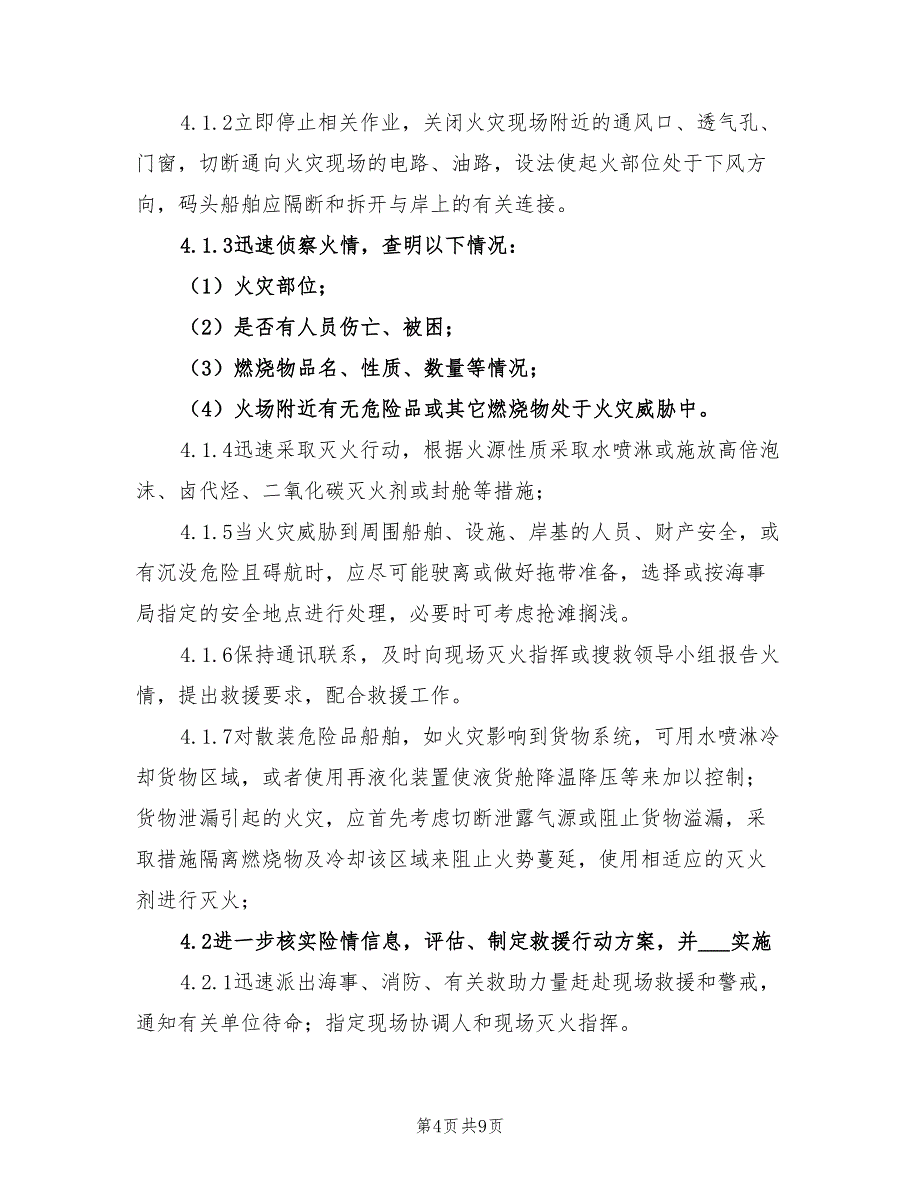 4.1.2立即停止相关作业，关闭火灾现场附近的通风口、透气孔、
门窗，切断通向火灾现场的电路、油路，设法使起火部位处于下风方
向，码头船舶应隔断和拆开与岸上的有关连接。
4.1.3迅速侦察火情，查明以下情况：
（1）火灾部位；
（2）是否有人员伤亡、被困；
（3）燃烧物品名、性质、数量等情况；
（4）火场附近有无危险品或其它燃烧物处于火灾威胁中。
4.1.4迅速采取灭火行动，根据火源性质采取水喷淋或施放高倍泡
沫、卤代烃、二氧化碳灭火剂或封舱等措施；
4.1.5当火灾威胁到周围船舶、设施、岸基的人员、财产安全，或
有沉没危险且碍航时，应尽可能驶离或做好拖带准备，选择或按海事
局指定的安全地点进行处理，必要时可考虑抢滩搁浅。
4.1.6保持通讯联系，及时向现场灭火指挥或搜救领导小组报告火
情，提出救援要求，配合救援工作。
4.1.7对散装危险品船舶，如火灾影响到货物系统，可用水喷淋冷
却货物区域，或者使用再液化装置使液货舱降温降压等来加以控制；
货物泄漏引起的火灾，应首先考虑切断泄露气源或阻止货物溢漏，采
取措施隔离燃烧物及冷却该区域来阻止火势蔓延，使用相适应的灭火
剂进行灭火；
4.2进一步核实险情信息，评估、制定救援行动方案，并___实施
4.2.1迅速派出海事、消防、有关救助力量赶赴现场救援和警戒，
通知有关单位待命；指定现场协调人和现场灭火指挥。
第4页 共9页